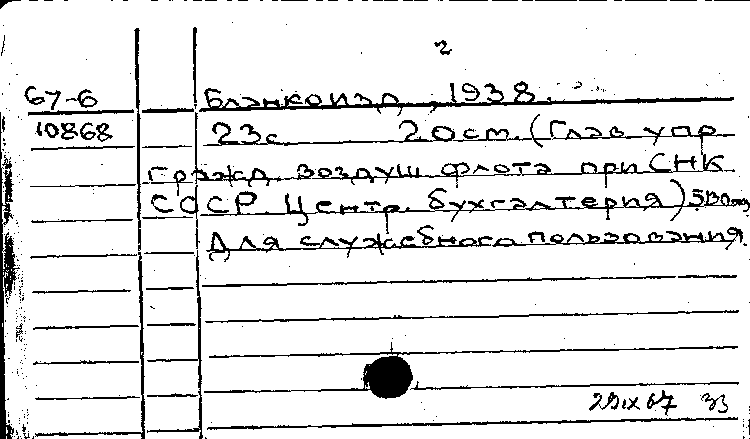 2
67-6 Бланкоизд, 1938.
10868 23с. 20см. (Глав. упр.
гражд. воздуш. флота при СНК
СССР. Центр. бухгалтерия)
Для служебного пользования.
29 IX 67